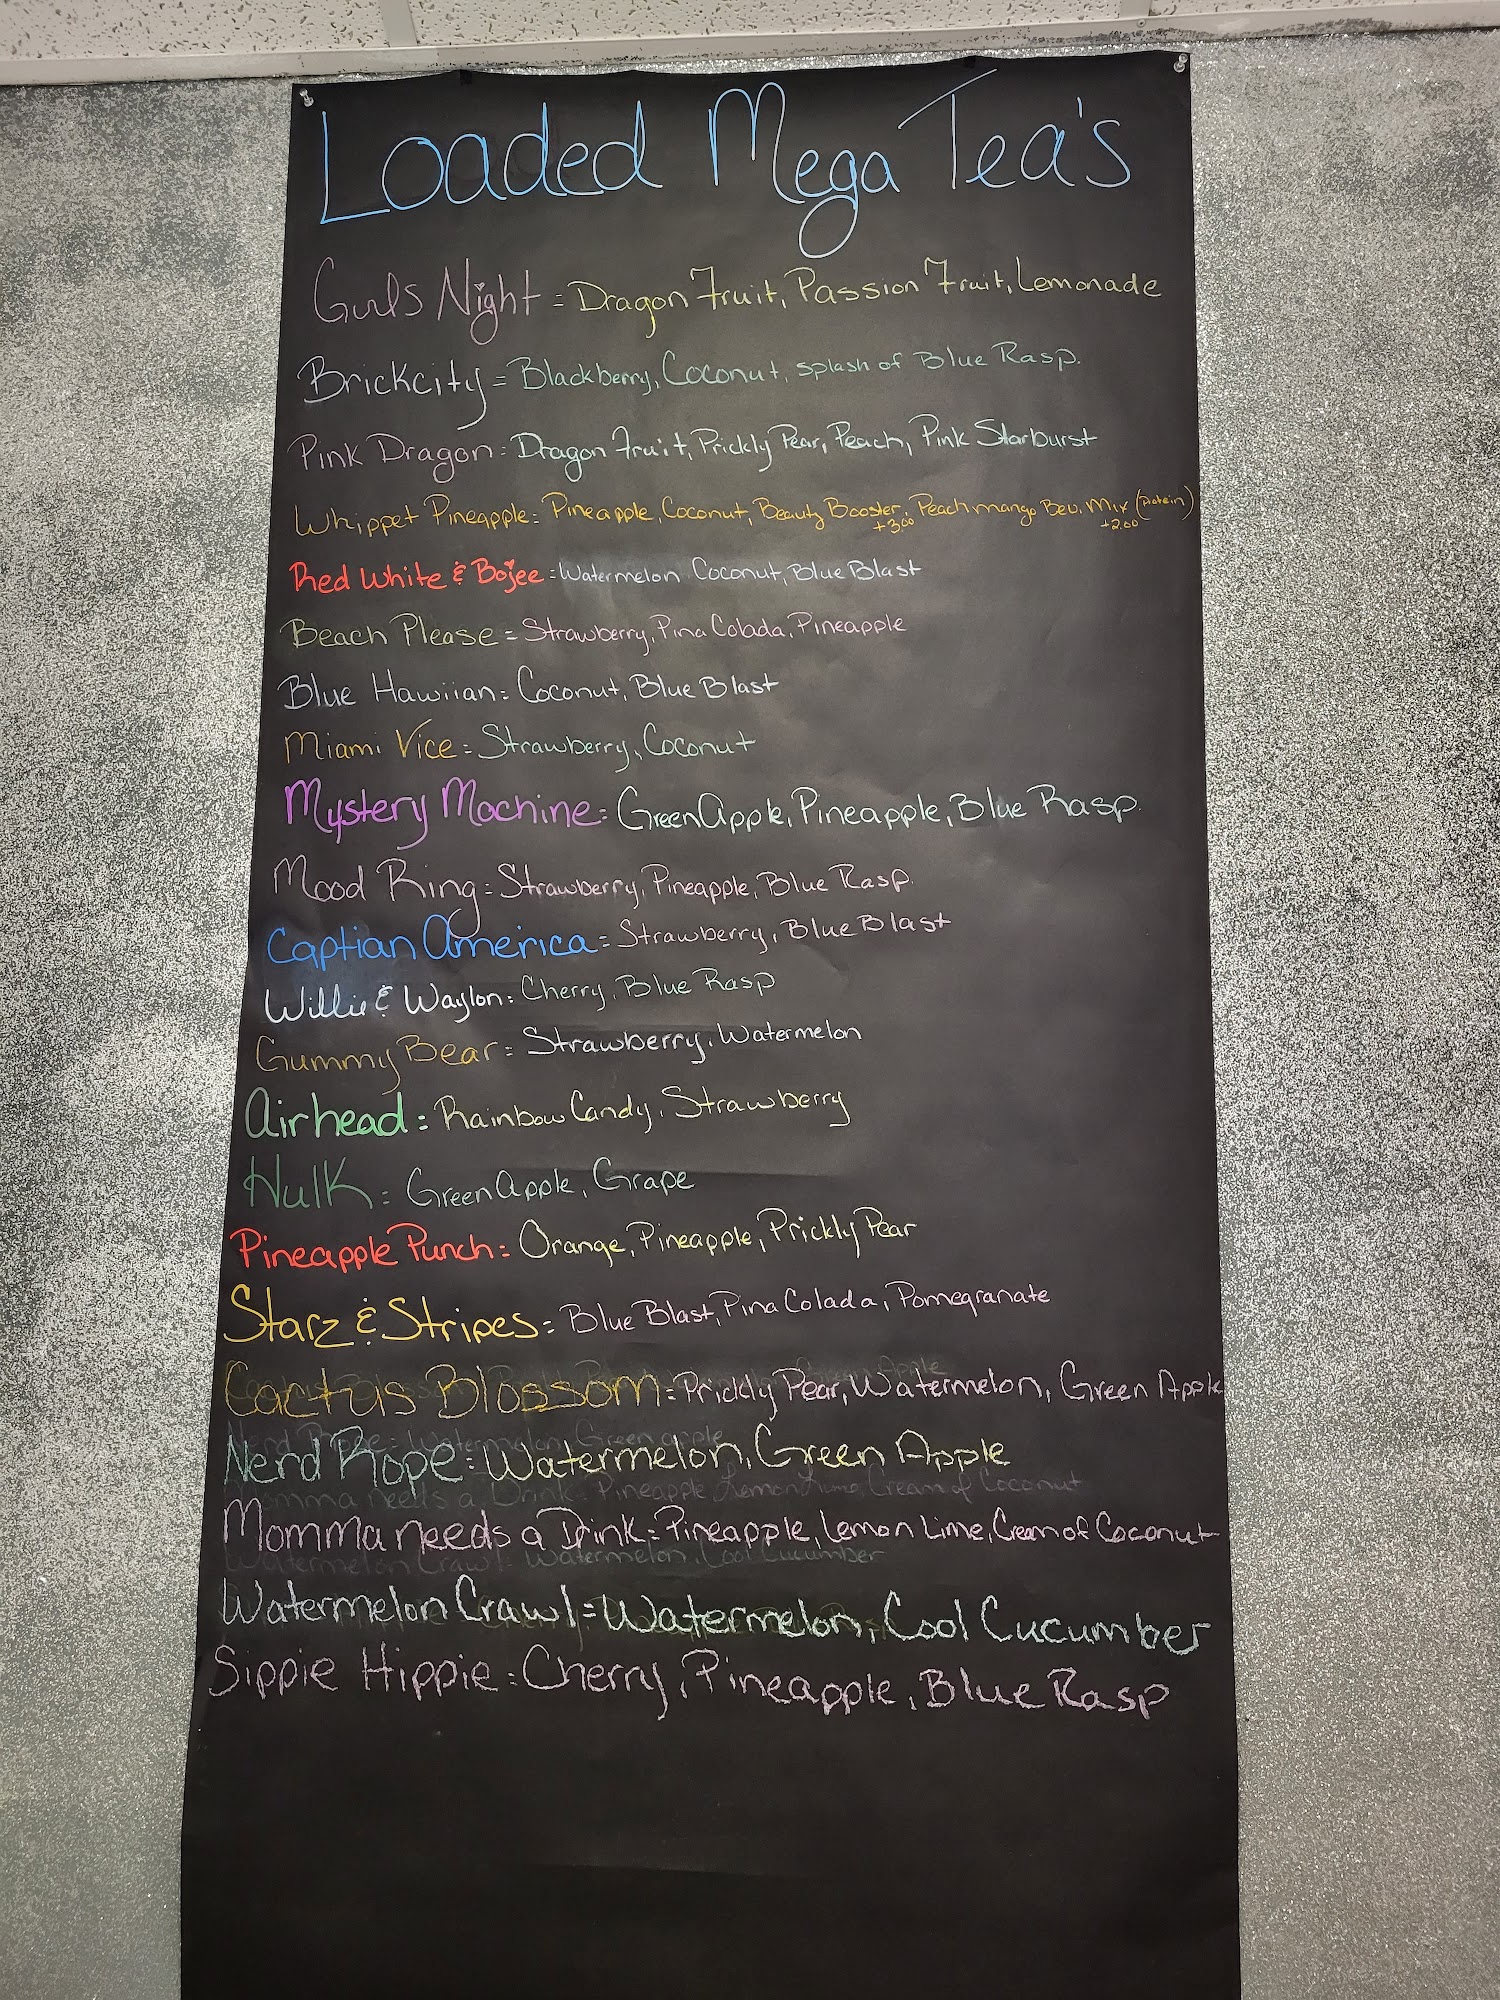 Loaded Mega Tea's
Girls Night = Dragon Fruit, Passion Fruit, Lemonade
Brickcity = Blackberry, Coconut, splash of Blue Rasp.
Pink Dragon = Dragon Fruit, Prickly Pear, Peach, Pink Starburst
Whippet Pineapple = Pineapple, Coconut, Beauty Booster, Peach mango Bev. Mix (Protein)
+3.00 +2.00
Red White & Bojee = Watermelon Coconut, Blue Blast
Beach Please = Strawberry, Pina Colada, Pineapple
Blue Hawiian = Coconut, Blue Blast
Miami Vice = Strawberry, Coconut
Mystery Machine = Green Apple, Pineapple, Blue Rasp.
Mood Ring = Strawberry, Pineapple, Blue Rasp.
Captian America = Strawberry, Blue Blast
Willie & Waylon = Cherry, Blue Rasp
Gummy Bear = Strawberry, Watermelon
Airhead = Rainbow Candy, Strawberry
Hulk = Green Apple, Grape
Pineapple Punch = Orange, Pineapple, Prickly Pear
Starz & Stripes = Blue Blast, Pina Colada, Pomegranate
Cactus Blossom = Prickly Pear, Watermelon, Green Apple
Nerd Rope = Watermelon, Green Apple
Momma needs a Drink = Pineapple, Lemon Lime, Cream of Coconut
Watermelon Crawl = Watermelon, Cool Cucumber
Sippie Hippie = Cherry, Pineapple, Blue Rasp